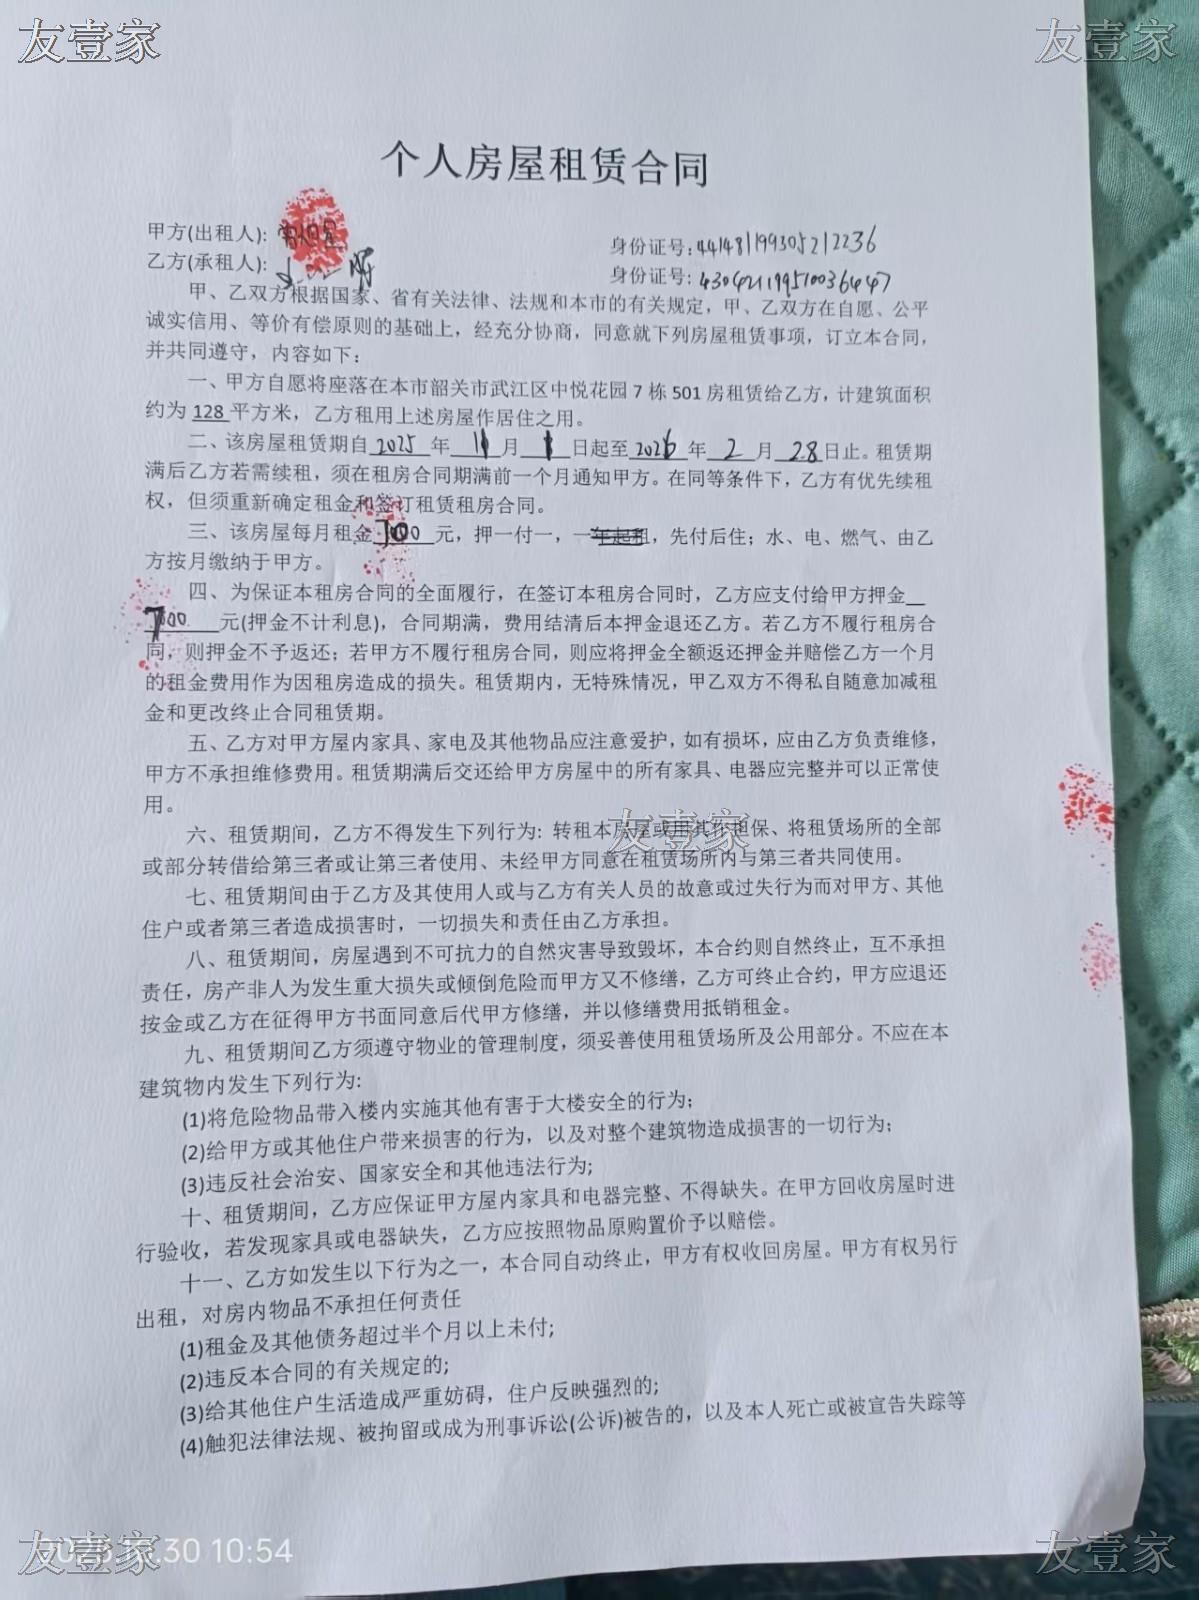 友壹家 友壹家
个人房屋租赁合同
甲方(出租人): 身份证号: 441481199305212236
乙方(承租人): 身份证号: 430421199510036447
甲、乙双方根据国家、省有关法律、法规和本市的有关规定，甲、乙双方在自愿、公平
诚实信用、等价有偿原则的基础上，经充分协商，同意就下列房屋租赁事项，订立本合同，
并共同遵守，内容如下:
一、甲方自愿将座落在本市韶关市武江区中悦花园 7 栋 501 房租赁给乙方，计建筑面积
约为 128 平方米，乙方租用上述房屋作居住之用。
二、该房屋租赁期自 2025 年 月 日起至 2026 年 2 月 28 日止。租赁期
满后乙方若需续租，须在租房合同期满前一个月通知甲方。在同等条件下，乙方有优先续租
权，但须重新确定租金和签订租赁租房合同。
三、该房屋每月租金 元，押一付一，一年起租，先付后住；水、电、燃气、由乙
方按月缴纳于甲方。
四、为保证本租房合同的全面履行，在签订本租房合同时，乙方应支付给甲方押金
元(押金不计利息)，合同期满，费用结清后本押金退还乙方。若乙方不履行租房合
同，则押金不予返还；若甲方不履行租房合同，则应将押金全额返还押金并赔偿乙方一个月
的租金费用作为因租房造成的损失。租赁期内，无特殊情况，甲乙双方不得私自随意加减租
金和更改终止合同租赁期。
五、乙方对甲方屋内家具、家电及其他物品应注意爱护，如有损坏，应由乙方负责维修，
甲方不承担维修费用。租赁期满后交还给甲方房屋中的所有家具、电器应完整并可以正常使
用。
友壹家
六、租赁期间，乙方不得发生下列行为: 转租本房屋或用其作担保、将租赁场所的全部
或部分转借给第三者或让第三者使用、未经甲方同意在租赁场所内与第三者共同使用。
七、租赁期间由于乙方及其使用人或与乙方有关人员的故意或过失行为而对甲方、其他
住户或者第三者造成损害时，一切损失和责任由乙方承担。
八、租赁期间，房屋遇到不可抗力的自然灾害导致毁坏，本合约则自然终止，互不承担
责任，房产非人为发生重大损失或倾倒危险而甲方又不修缮，乙方可终止合约，甲方应退还
按金或乙方在征得甲方书面同意后代甲方修缮，并以修缮费用抵销租金。
九、租赁期间乙方须遵守物业的管理制度，须妥善使用租赁场所及公用部分。不应在本
建筑物内发生下列行为:
(1)将危险物品带入楼内实施其他有害于大楼安全的行为；
(2)给甲方或其他住户带来损害的行为，以及对整个建筑物造成损害的一切行为；
(3)违反社会治安、国家安全和其他违法行为;
十、租赁期间，乙方应保证甲方屋内家具和电器完整、不得缺失。在甲方回收房屋时进
行验收，若发现家具或电器缺失，乙方应按照物品原购置价予以赔偿。
十一、乙方如发生以下行为之一，本合同自动终止，甲方有权收回房屋。甲方有权另行
出租，对房内物品不承担任何责任
(1)租金及其他债务超过半个月以上未付;
(2)违反本合同的有关规定的;
(3)给其他住户生活造成严重妨碍，住户反映强烈的;
(4)触犯法律法规、被拘留或成为刑事诉讼(公诉)被告的，以及本人死亡或被宣告失踪等
友壹家 30 10:54 友壹家